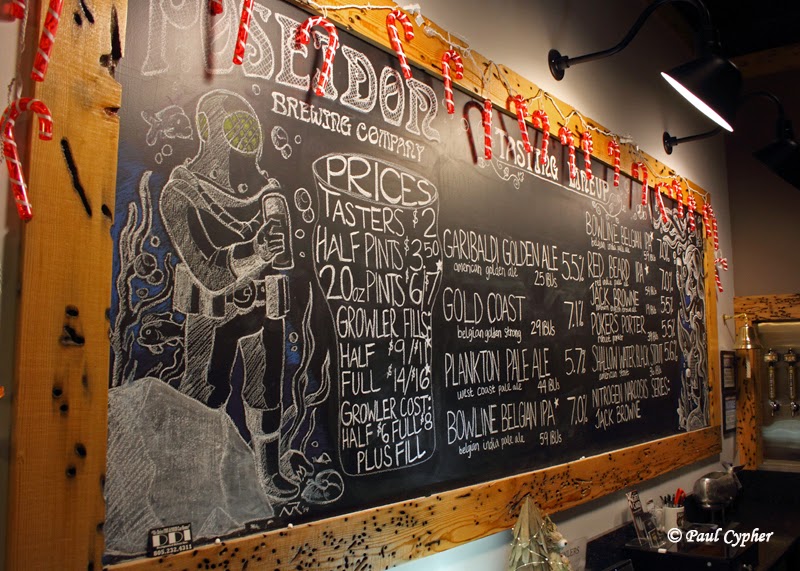 POSEIDON
BREWING COMPANY
PRICES
TASTERS $2
HALF PINTS $3.50
20oz PINTS $6/$7
GROWLER FILLS:
HALF $9/$11
FULL $14/$16
GROWLER COST:
HALF $6 FULL $8
PLUS FILL
TASTING LINEUP
GARIBALDI GOLDEN ALE 5.5%
american golden ale 25 IBUs
GOLD COAST 7.1%
belgian golden strong 29 IBUs
PLANKTON PALE ALE 5.7%
west coast pale ale 44 IBUs
BOWLINE BELGIAN IPA* 7.0%
belgian india pale ale 59 IBUs
BOWLINE BELGIAN IPA* 7.0%
belgian india pale ale 59 IBUs
RED BEARD IPA* 7.0%
JACK BROWNE 5.5%
POKER'S PORTER 5.5%
SHALLOW WATER BLACK STOUT 5.6%
NITROGEN NARCOSIS SERIES:
JACK BROWNE
PDI
805.232.4311
© Paul Cypher